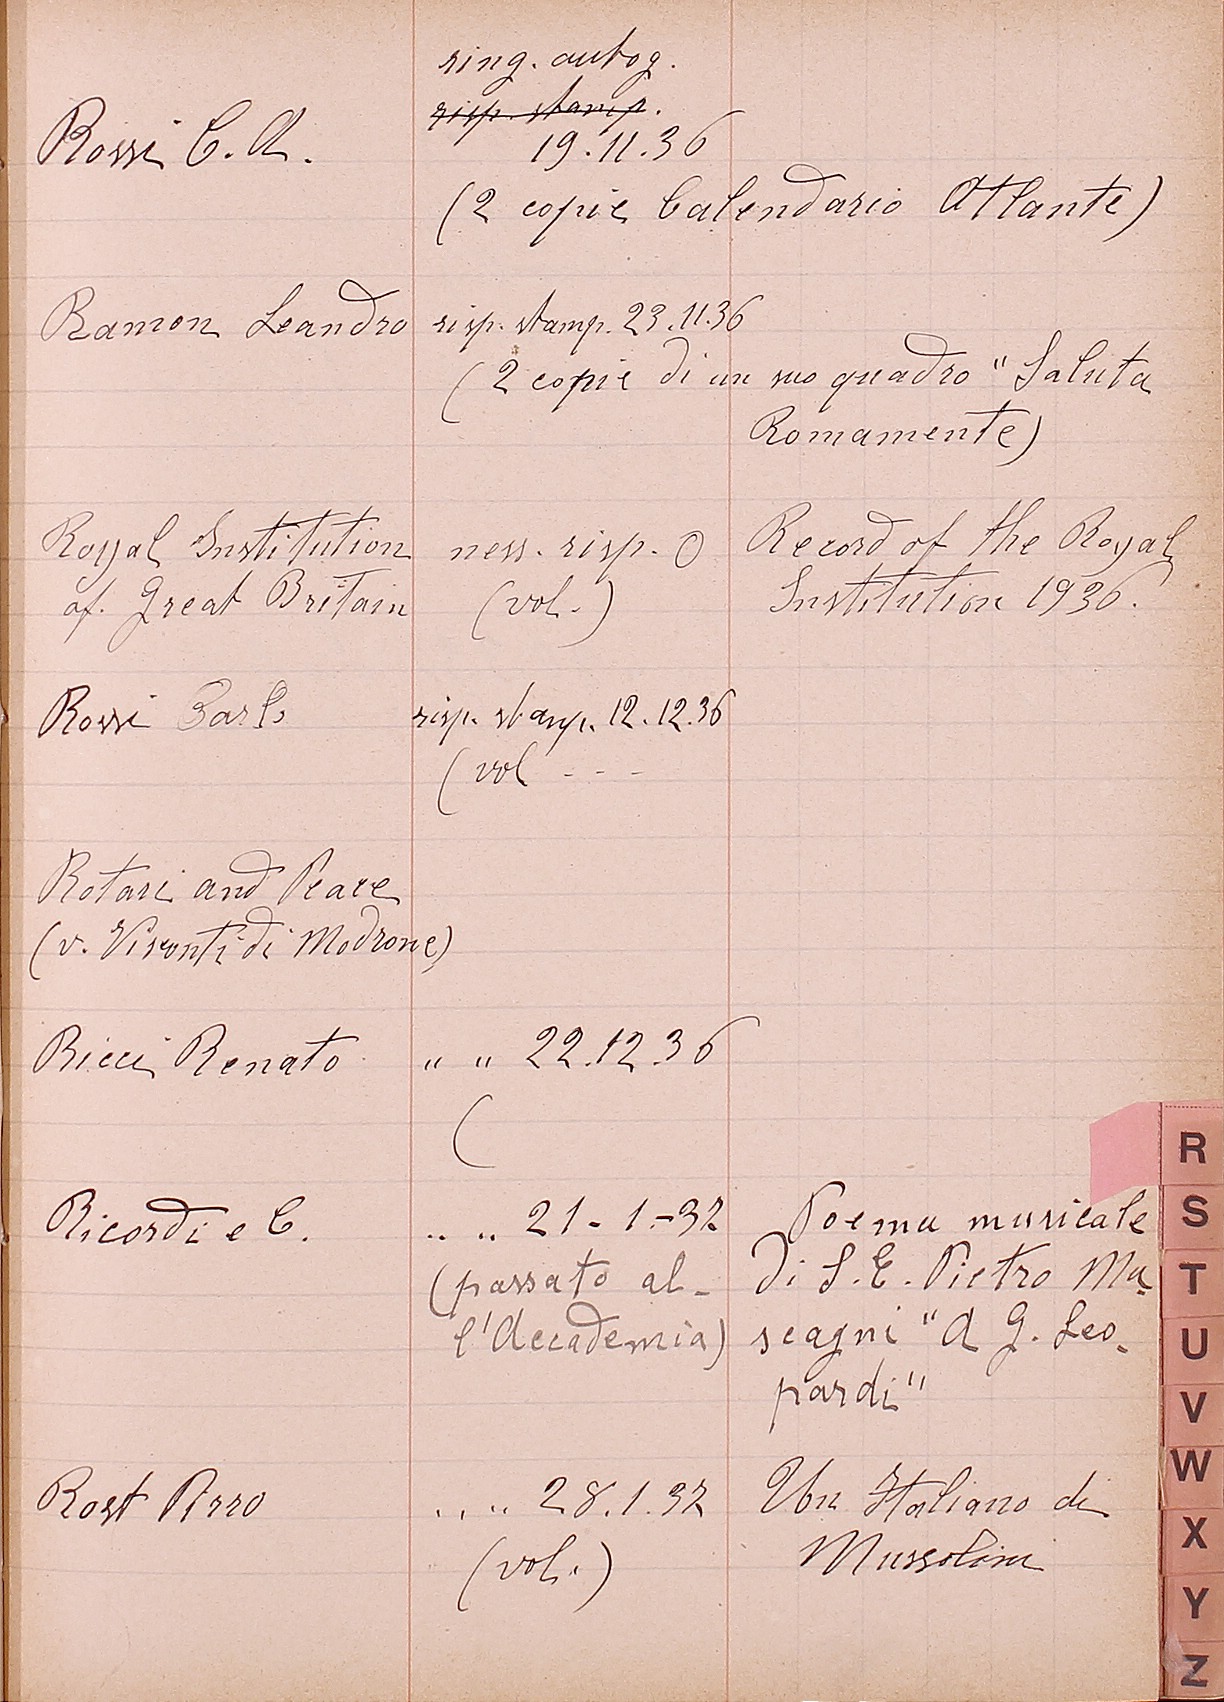 ring. autog.
risp. stamp.
Rossi C. A.
19.11.36
(2 copie Calendario Atlante)
Ramon Leandro risp. stamp. 23.11.36
(2 copie di un suo quadro "Saluta
Romamente)
Royal Institution ness. risp. O Record of the Royal
of. Great Britain (vol.) Institution 1936.
Rossi Carlo risp. stamp. 12.12.36
(vol - - -
Rotari and Peace
(v. Visconti di Modrone)
Ricci Renato " " 22.12.36
(
Ricordi e C. " " 21-1-37 Poema musicale
(passato al- di S.E. Pietro Ma-
l'Accademia) scagni "A G. Leo-
pardi"
Rost Pirro " " 28.1.37 Un Italiano di
(vol.) Mussolini
R
S
T
U
V
W
X
Y
Z